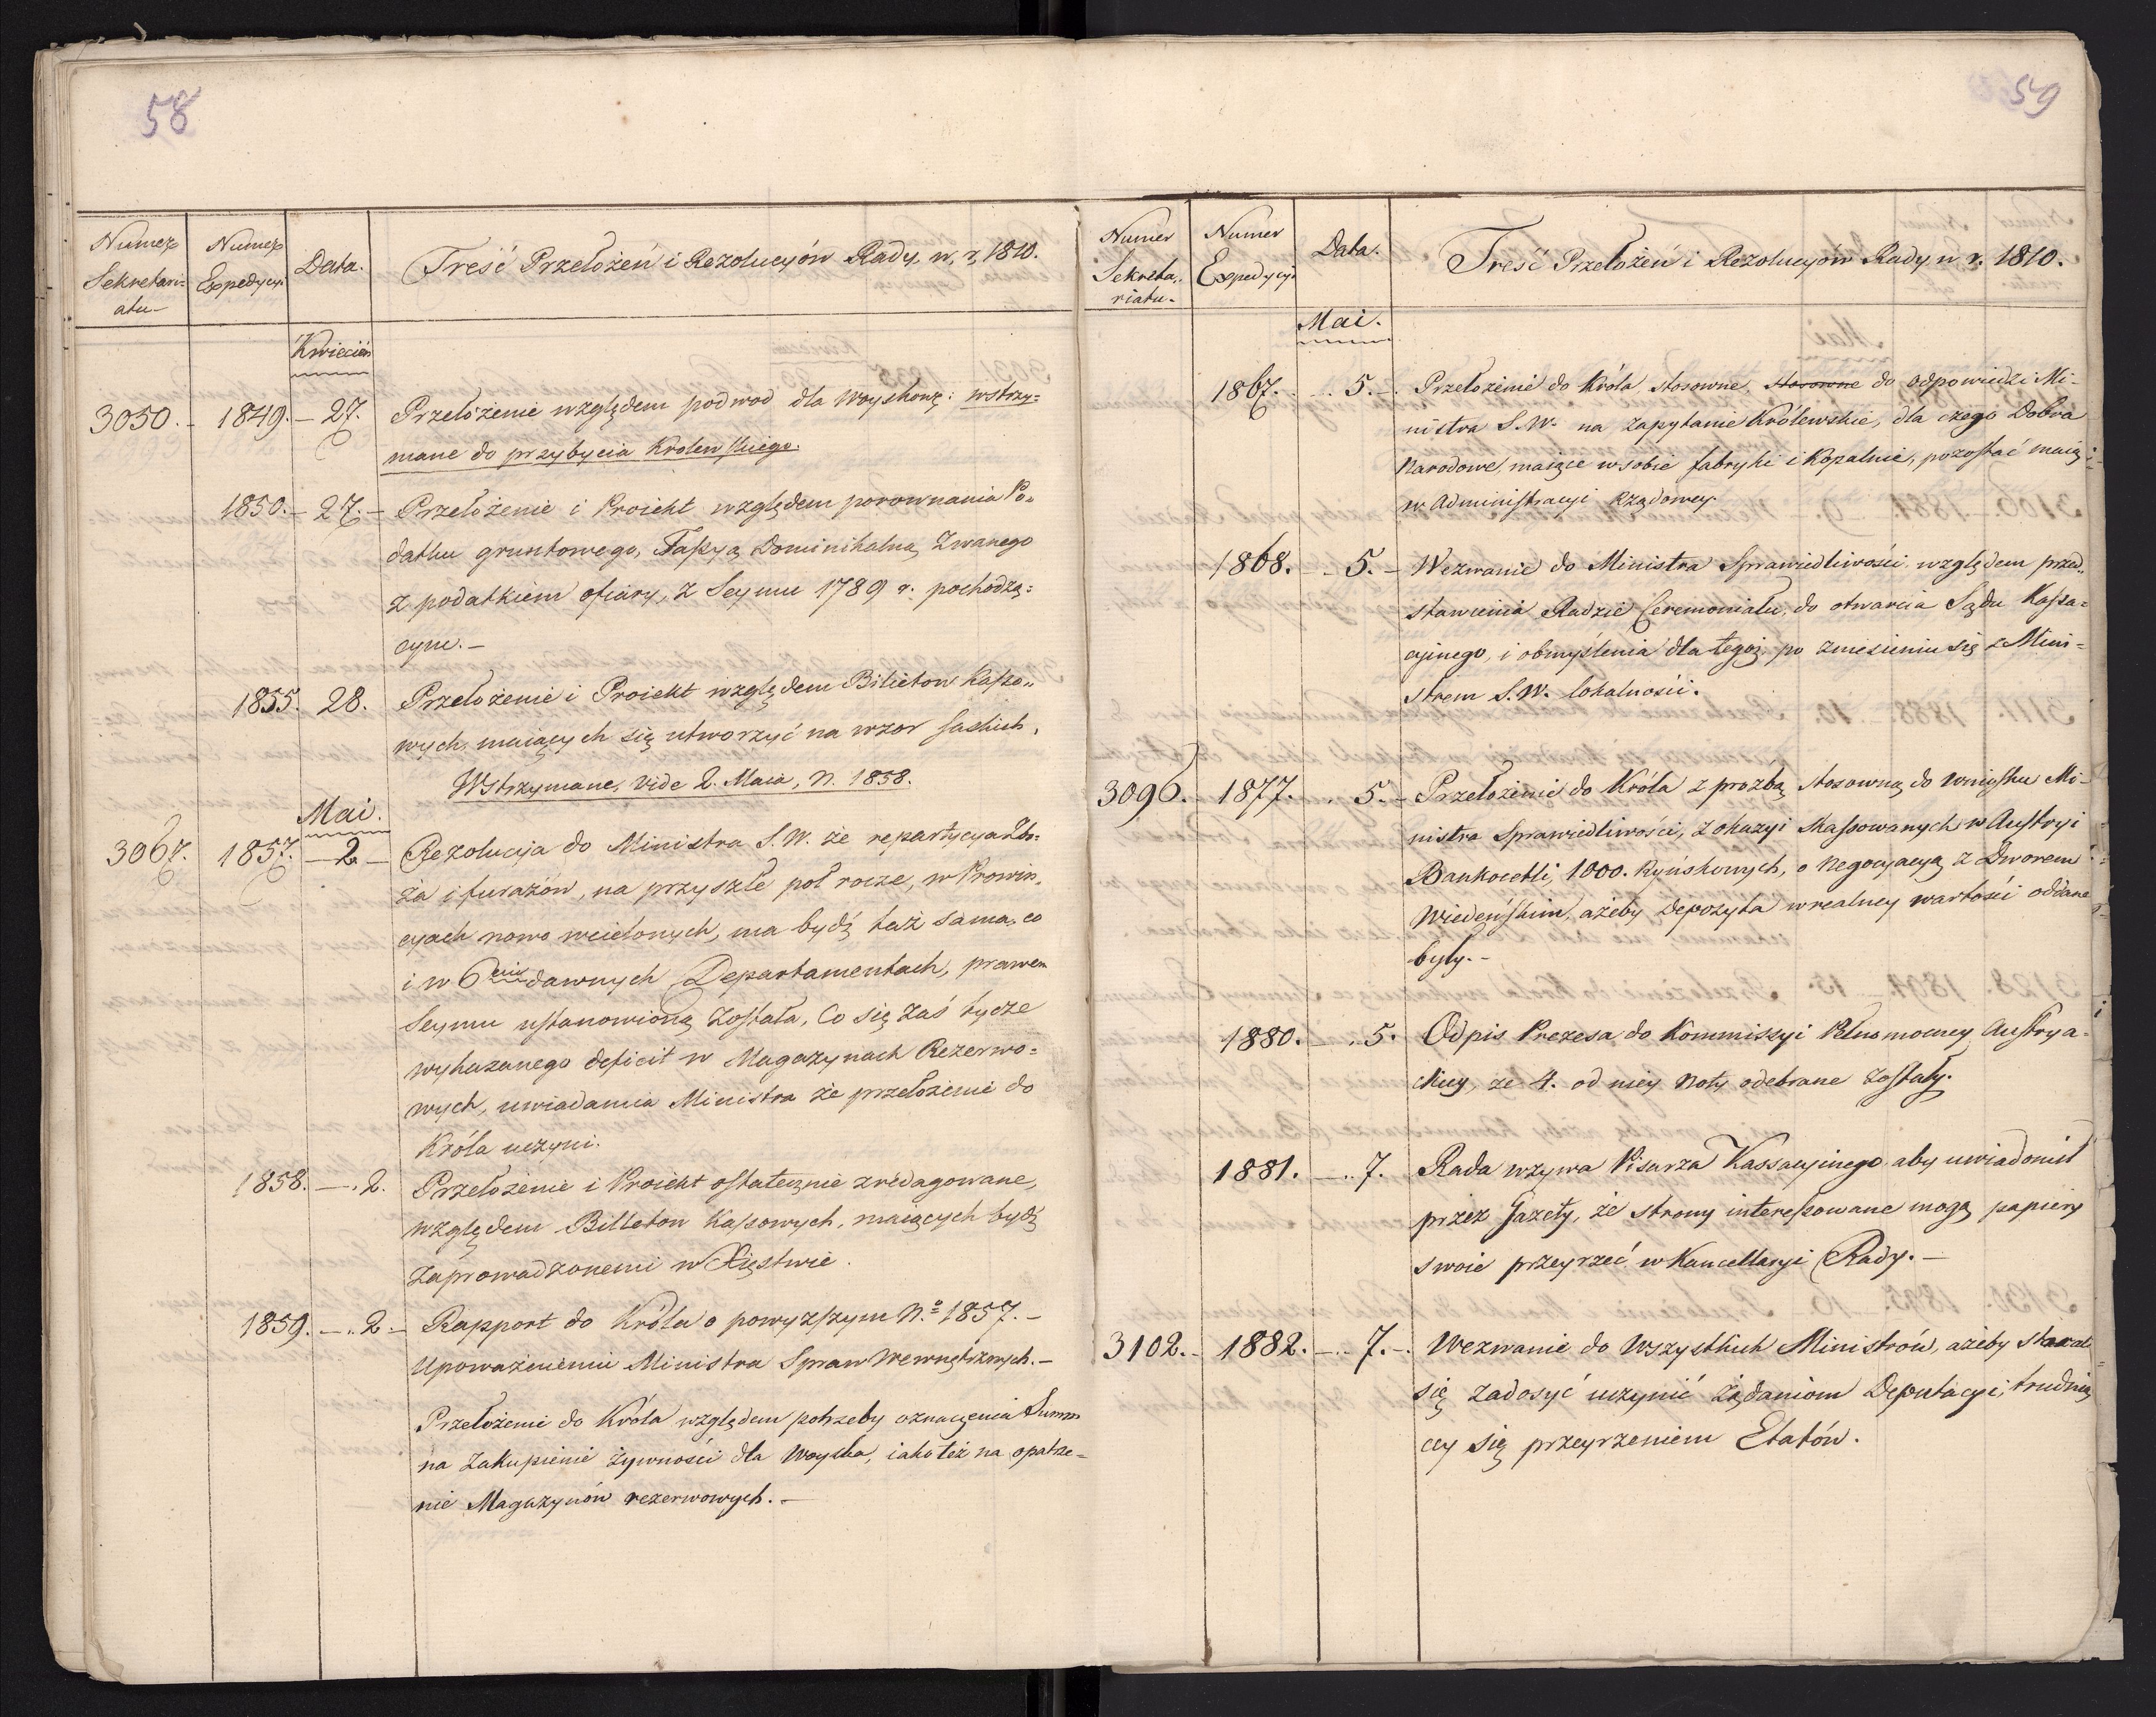 58
Numer Sekretari=atu
Numer Expedycyi
Data.
Treść Przełożeń i Rezolucyów Rady w r. 1810.
Kwiecień
3050. - 1849. - 27. Przełożenie względem podwod dla Woyskowę: wstrzy=
mane do przybycia Krolewskiego.
1850. - 27. - Przełożenie i Proiekt względem porownania Po„
datku gruntowego, Taxyą Dominikalną Zwanego
z podatkiem ofiary, z Seymu 1789 r. pochodzą=
cym. -
1855. 28. Przełożenie i Proiekt względem Biletow Kasso„
wych, maiących się utworzyć na wzor saskich,
Wstrzymane, vide 2. Maia, N. 1858.
Mai.
3067. 1857. - 2 - Rezolucyja do Ministra S. W. że repartycya Zbo=
ża i furażów, na przyszłe poł rocze, w Prowin„
cyach nowo wcielonych, ma bydź taż sama, co
i w 6ciu dawnych Departamentach, prawem
Seymu ustanowioną została, Co się zaś tycze
wykazanego deficit w Magazynach Rezerwo=
wych, uwiadamia Ministra że przełożenie do
Króla uczyni.
1858. - . 2. Przełożenie i Proiekt ostatecznie zredagowane,
względem Billetow Kassowych, maiących bydź
zaprowadzonemi w Xięstwie.
1859. - .. 2 - Rapport do Króla o powyższym N.º 1857. -
Upoważnieniu Ministra Spraw Wewnętrznych. -
Przełożenie do Króla względem potrzeby oznaczenia Summ
na Zakupienie żywności dla Woyska, iako też na opatrze=
nie Magazynów rezerwowych. -
59
Numer Sekreta„riatu.
Numer Expedycyi
Data.
Treść Przełożeń i Rezolucyów Rady w r. 1810.
Mai.
1867. - . 5. - Przełożenie do Króla, stosowne, stosowne do odpowiedzi Mi=
nistra S. W. na zapytanie Królewskie, dla czego Dobra
Narodowe, maiące w sobie fabryki i Kopalnie, pozostać maią
w Administracyi Rządowey.
1868. - . 5. - Wezwanie do Ministra Sprawiedliwości względem przed„
stawienia Radzie Ceremoniału, do otwarcia Sądu Kassa=
cyinego, i obmyślenia dla tegoż, po zniesieniu się z Mini=
strem S. W. lokalności.
3096. 1877. . 5. - Przełożenie do Króla z prozbą, stosowną do Wniosku Mi=
nistra Sprawiedliwości, z okazyi skassowanych w Austryi
Bankocetli, 1000. Ryńskowych, o negocyacyą z Dworem
Wiedeńskim, ażeby Depozyta w realney wartości oddane
były. -
1880. - . 5. Odpis Prezesa do Kommissyi Pełnomocney Austrya=
ckiey, że 4. od niey Noty odebrane zostały.
1881. - .. 7. Rada wzywa Pisarza Kassacyinego, aby uwiadomił
przez Gazety, że strony interessowane mogą papiery
swoie przeyrzeć w Kancellaryi Rady. -
3102. - 1882. - .. 7. - Wezwanie do Wszystkich Ministrów, ażeby starali
się zadosyć uczynić żądaniom Deputacyi, trudnią
cey się przeyrzeniem Etatów.